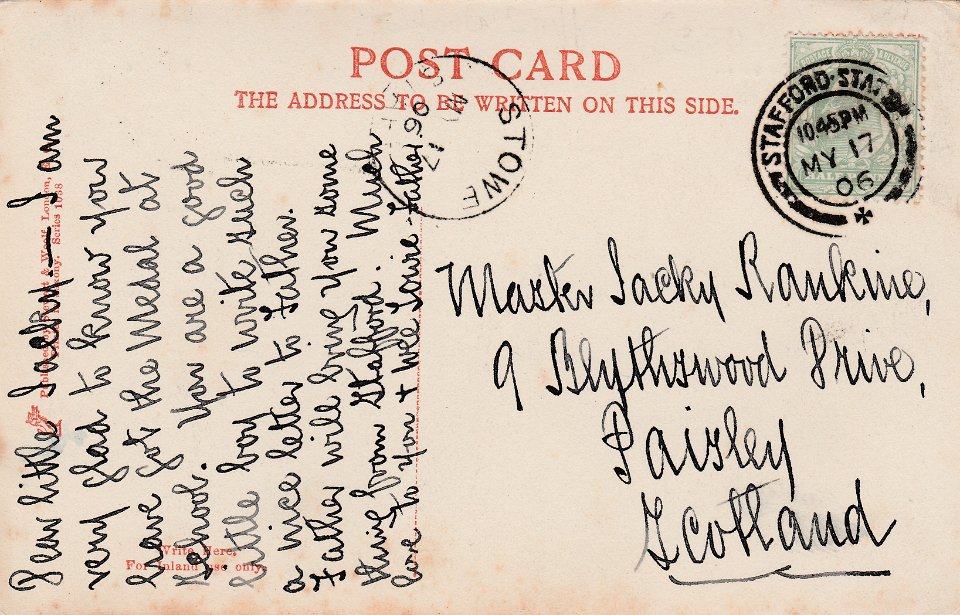 POST CARD
THE ADDRESS TO BE WRITTEN ON THIS SIDE.
STOWE
MY 17
06
STAFFORD
10.45PM
MY 17
06
Dear little Jacky:— I am
very glad to know you
have got the Medal at
School. You are a good
little boy to write such
a nice letter to Father.
Father will bring you some
thing from Stafford. Much
love to you & wee Louie. Father.
Write Here.
For Inland use only.
London,
Series 1038
Master Jacky Rankine,
9 Blythswood Drive,
Paisley
Scotland